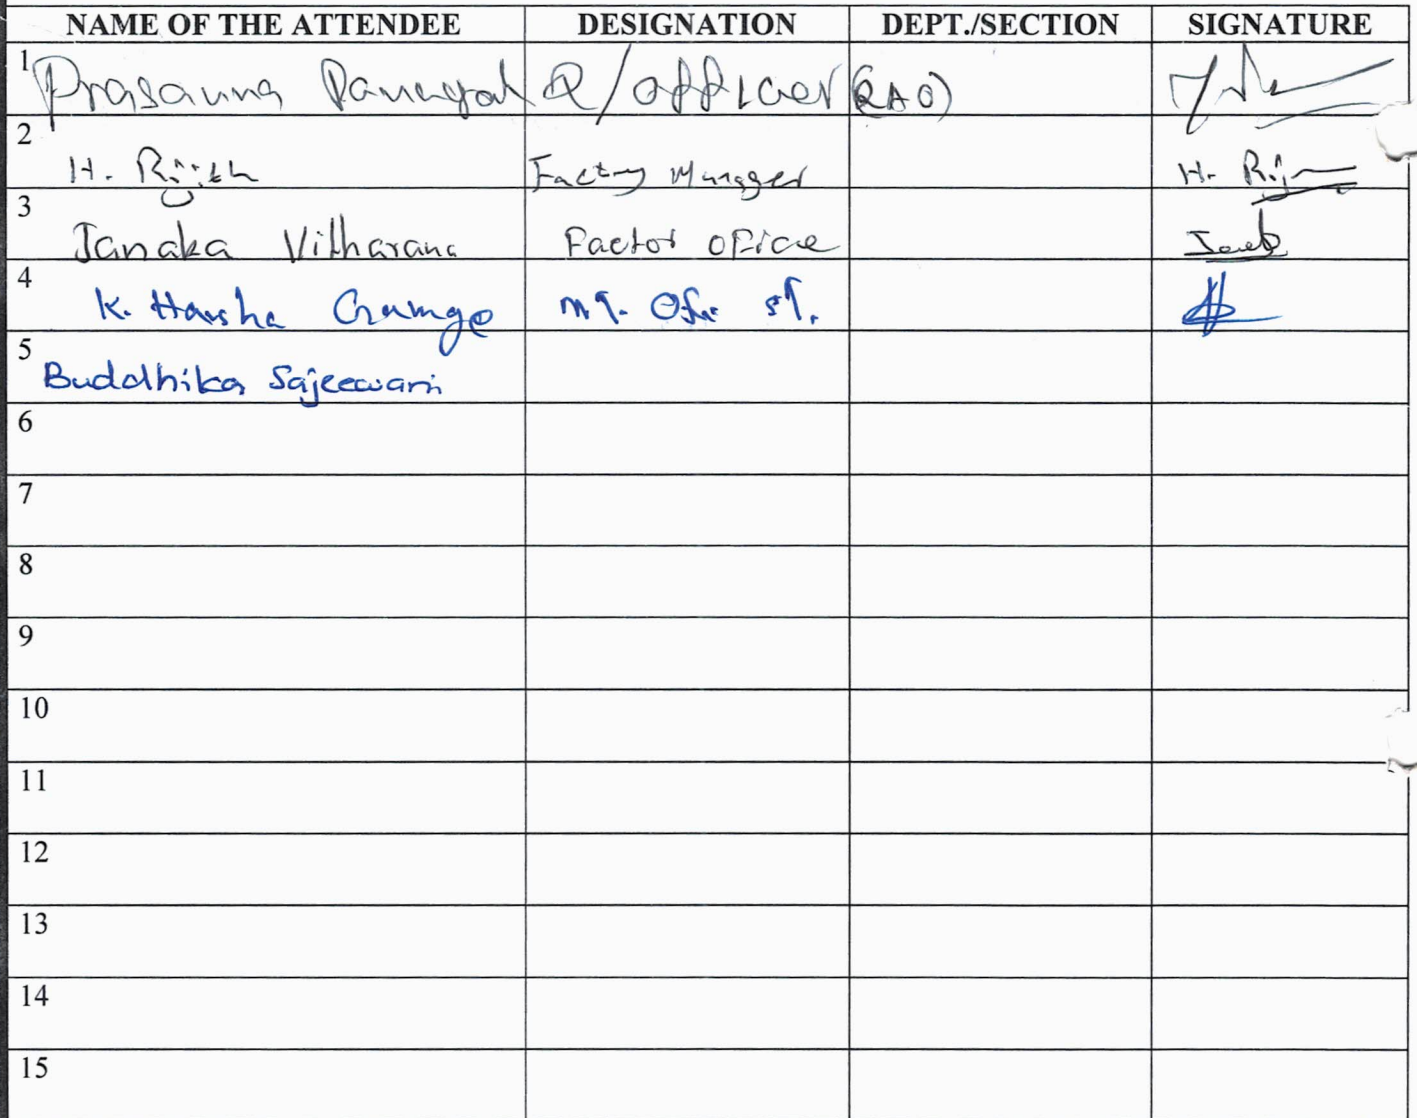 NAME OF THE ATTENDEE DESIGNATION DEPT./SECTION SIGNATURE
1 Prasanna Q/officer (QAO)
2 H. Rijith Factory Manager H.
3 Janaka Vitharana Factor ofice
4 K. Harsha
5 Buddhika Sajeewani
6
7
8
9
10
11
12
13
14
15